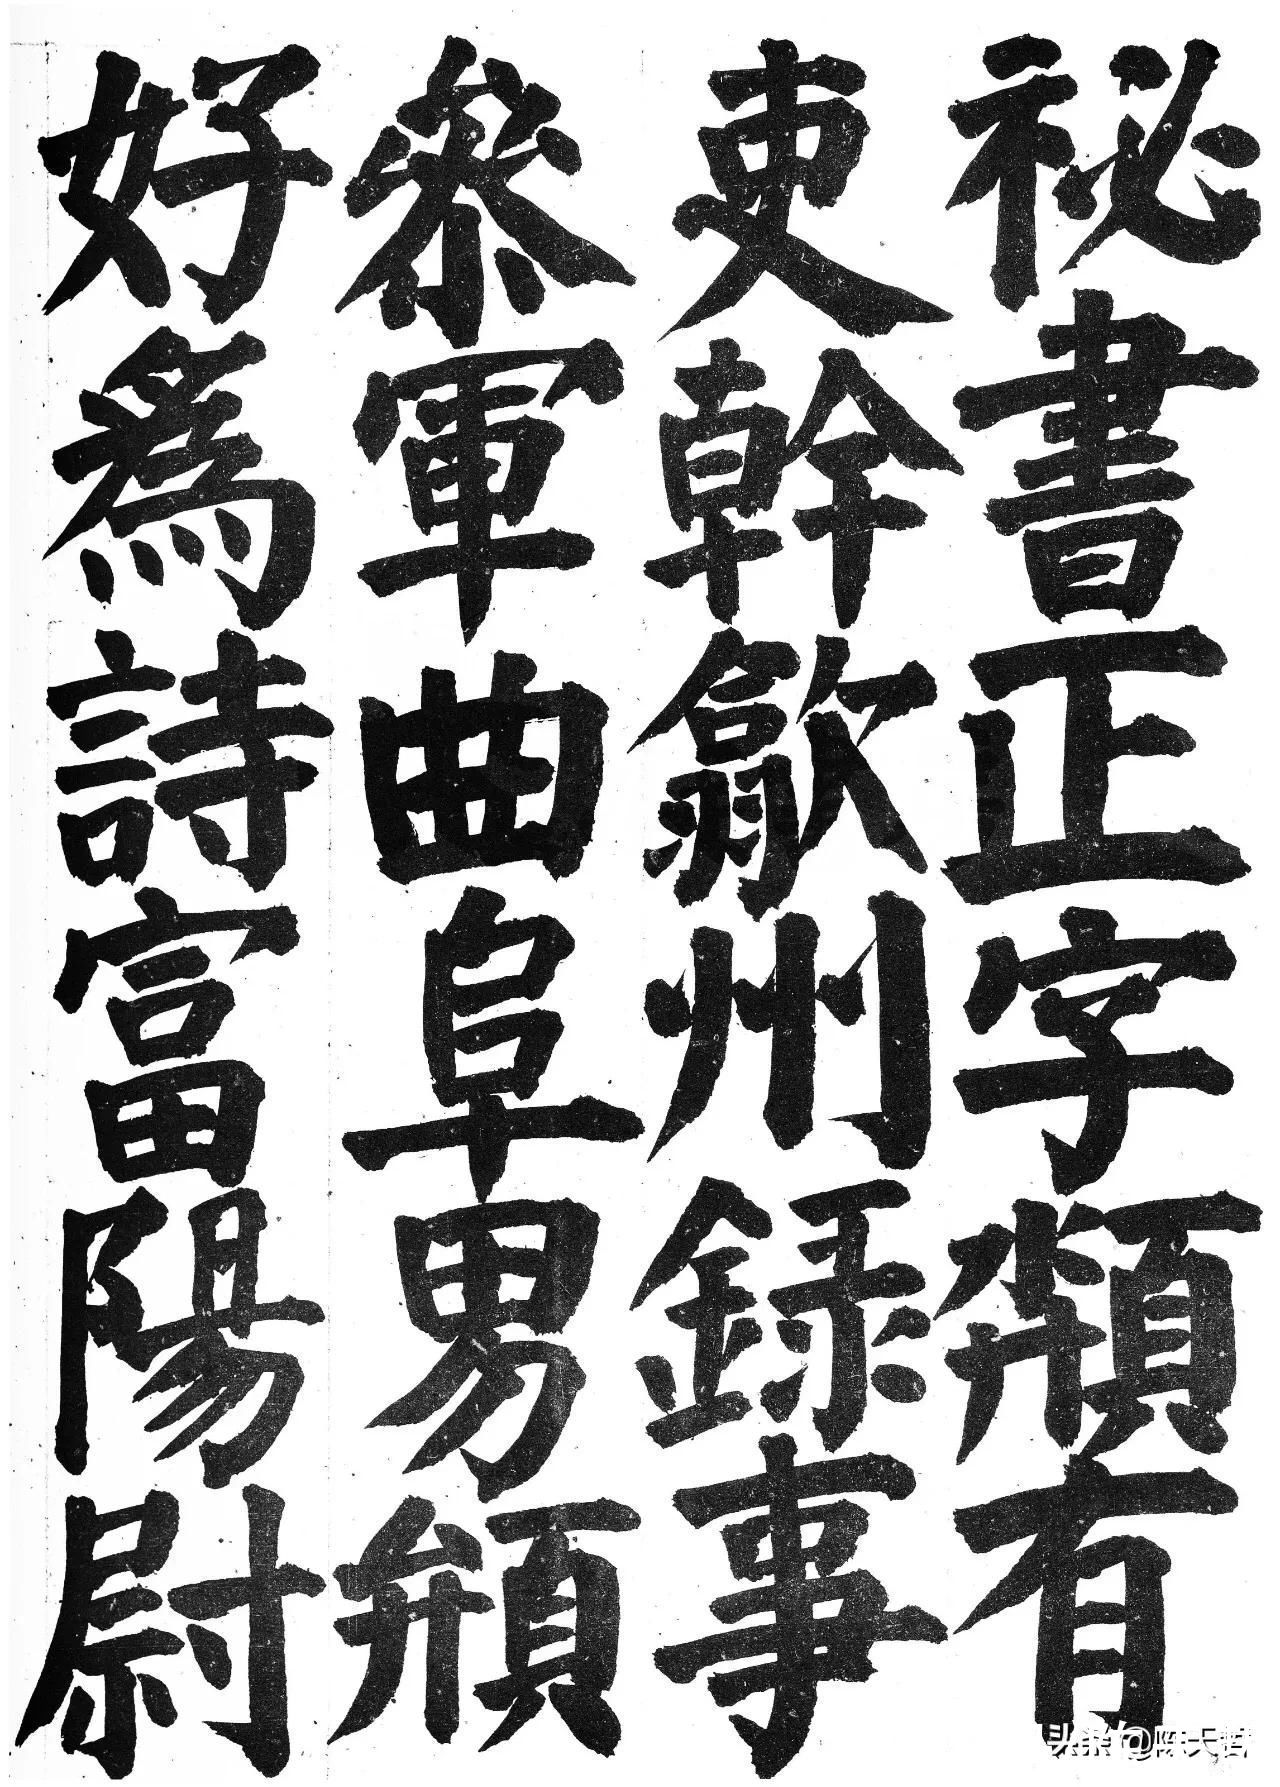 祕書正字頮有
吏幹歙州録事
叅軍曲阜男
好爲詩富陽尉
头条@陈天哲